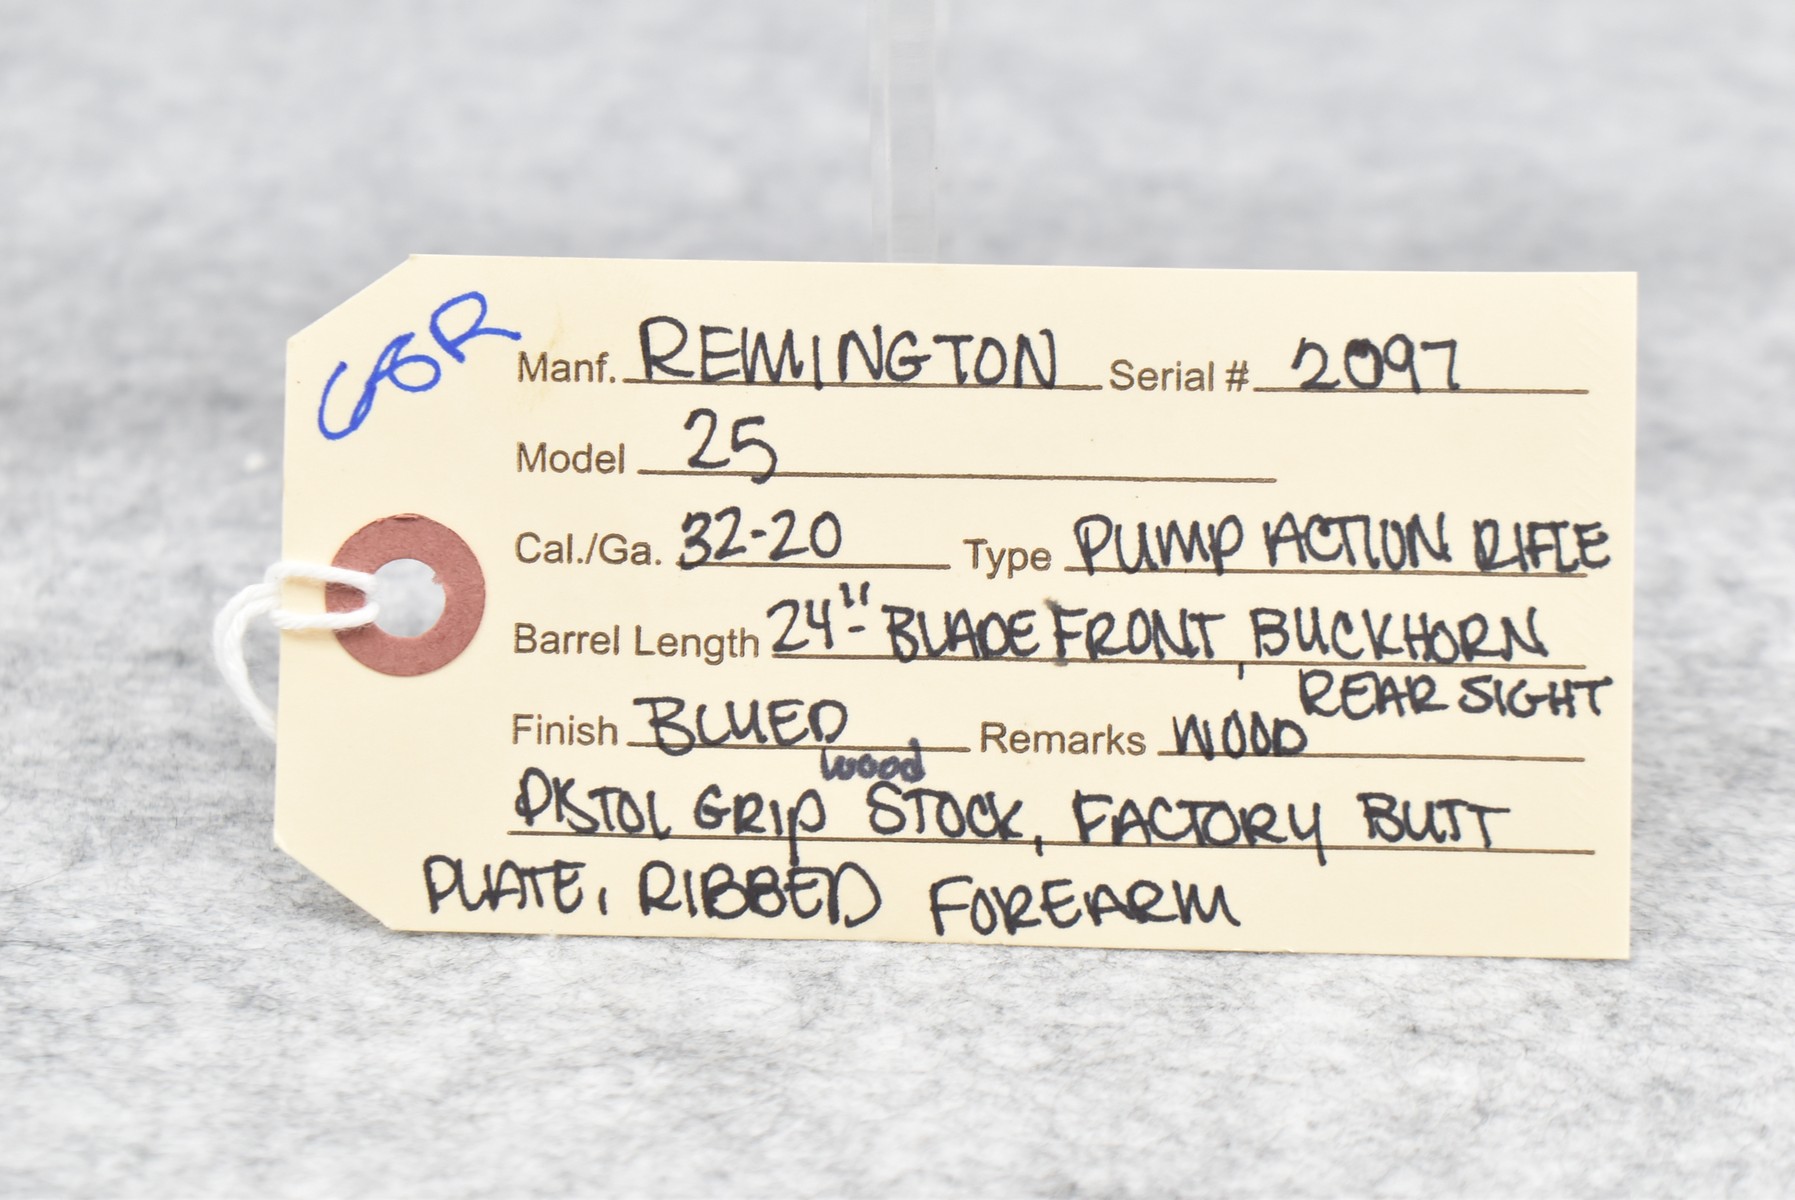 Manf. REMINGTON Serial # 2097
Model 25
Cal./Ga. 32-20 Type PUMP ACTION RIFLE
Barrel Length 24"- BLADE FRONT, BUCKHORN
REAR SIGHT
Finish BLUED Remarks WOOD
wood
PISTOL GRIP STOCK, FACTORY BUTT
PLATE, RIBBED FOREARM